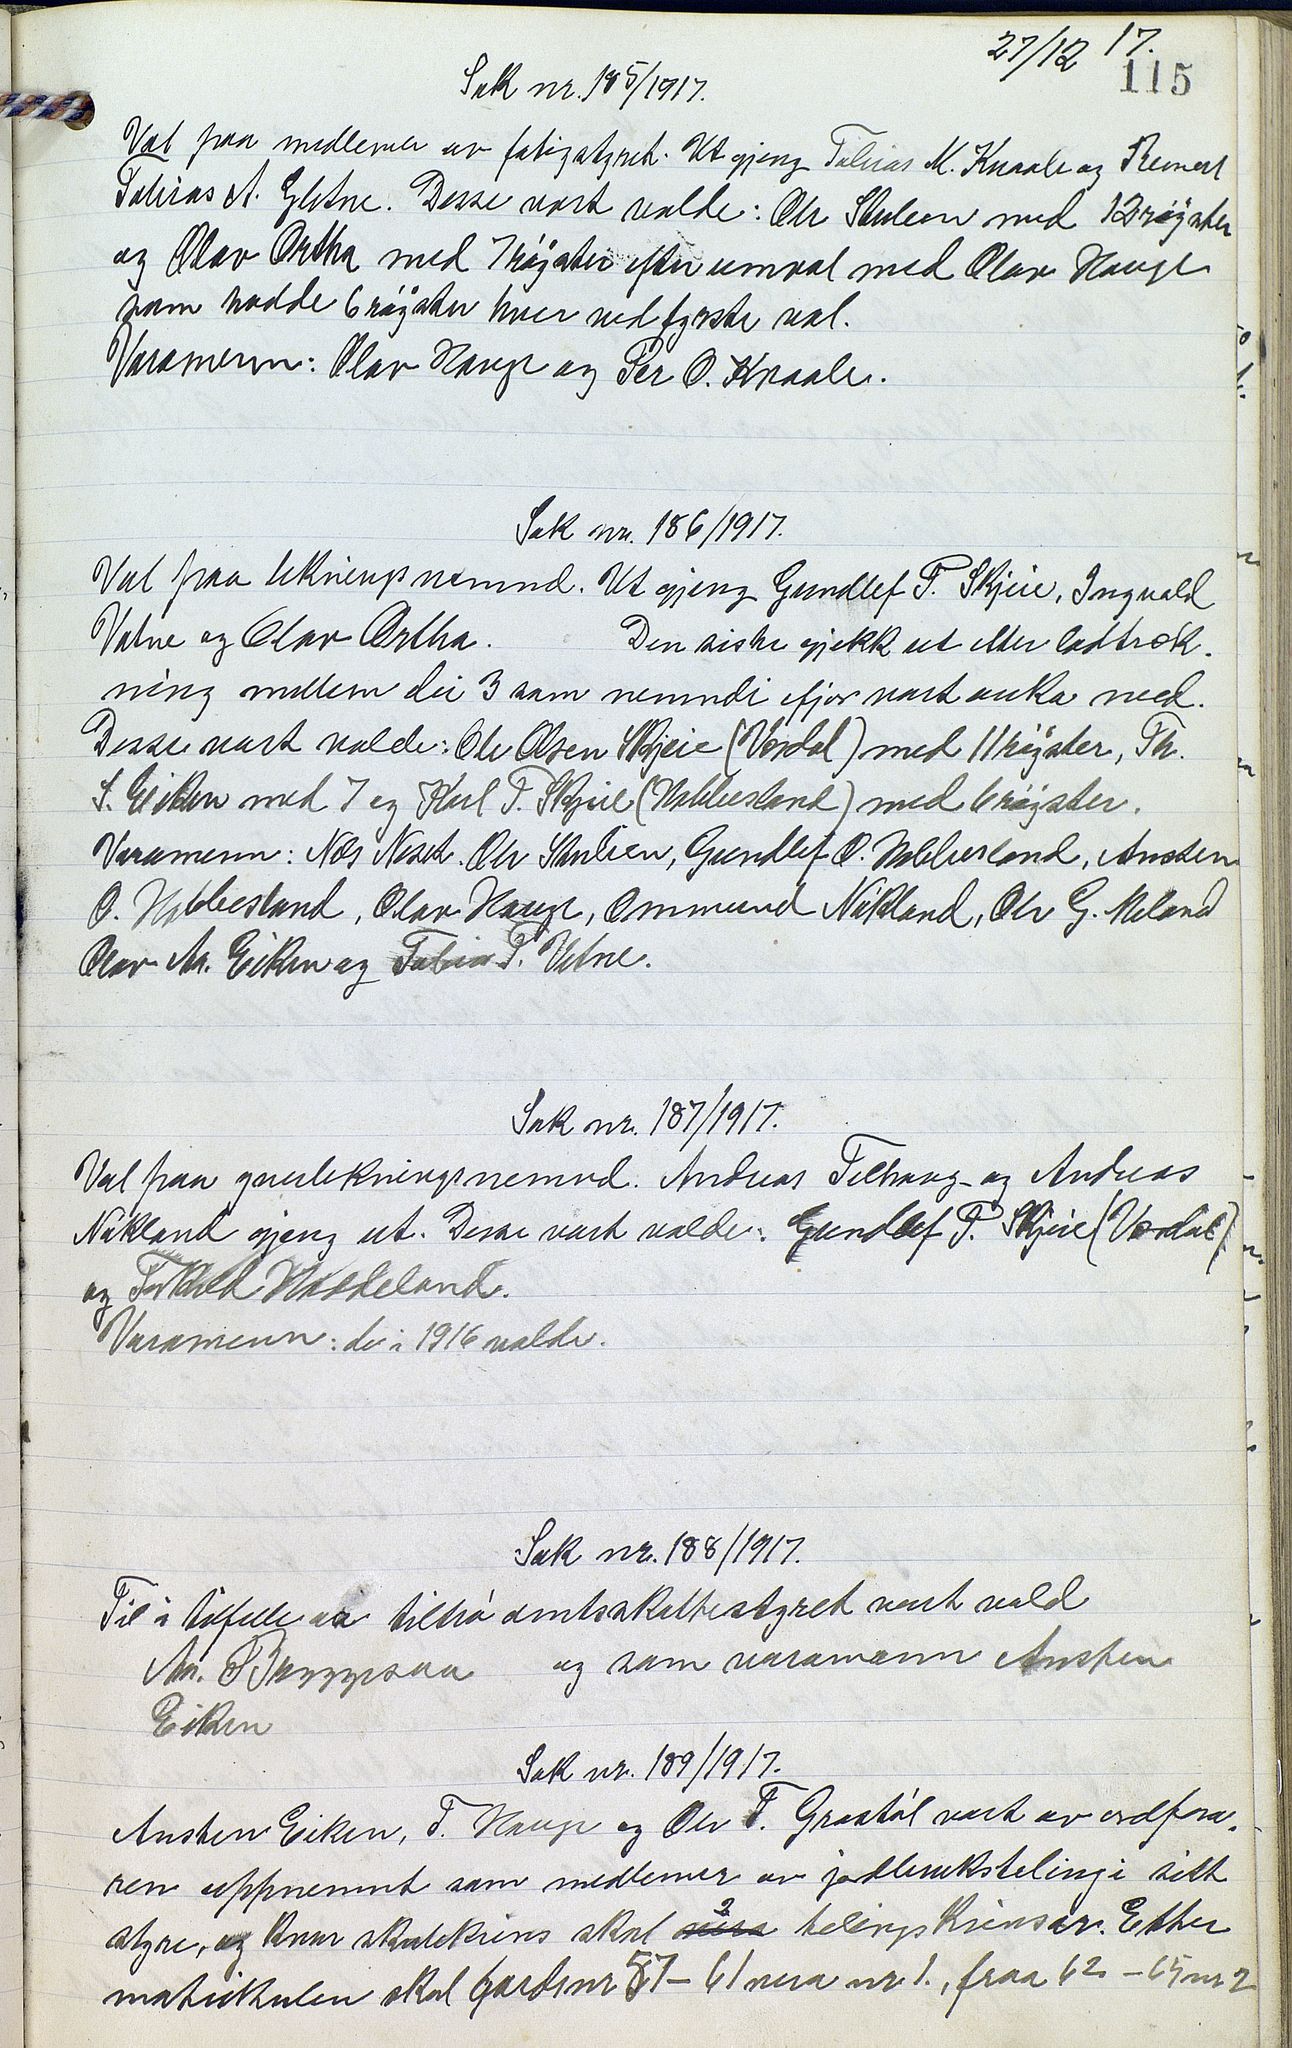 27/12 17.
115
Sak nr. 185/1917.
Val paa medlemer av fatigstyret. Ut gjeng Tobias M. Knaale og Reinert
Tobias A. Gletne. Desse vart valde: Ole Stulien med 12 røyster
og Olav Ørtha med 7 røyster efter umval med Olav Hauge
som hadde 6 røyster hver ved fyrste val.
Varamenn: Olav Hauge og Per O. Knaale.
Sak nr. 186/1917.
Val paa likningsnemnd. Ut gjeng Gundlef T. Skjeie, Ingvald
Vatne og Olav Ørtha. Den siste gjekk ut etter lodtrek-
ning mellem dei 3 som nemndi ifjor vart auka med.
Desse vart valde: Ole Olsen Skjeie (Verdal) med 11 røyster, Th.
S. Eiken med 7 og Karl T. Skjeie (Hobbesland) med 6 røyster.
Varamenn: Nils Neset. Ole Stulien, Gundlef O. Hobbesland, Ansten
O. Hobbesland, Olav Hauge, Ommund Nakland, Ole G. Meland
Olav An. Eiken og Tobias T. Vatne.
Sak nr. 187/1917.
Val paa yverlikningsnemnd. Andreas Telhaug og Andreas
Nakland gjeng ut. Desse vart valde: Gundlef T. Skjeie (Verdal)
og Torkild Haddeland.
Varamenn: dei i 1916 valde.
Sak nr. 188/1917.
Til i tilfelle aa tiltrø amtsskattestyret vart vald
An. Bryggesaa og som varamann Ansten
Eiken
Sak nr. 189/1917.
Ansten Eiken, T. Hauge og Ole T. Graatøl vart av ordføra-
ren uppnemnt som medlemer av jordbrukstelingi sitt
styre, og kvar skulekrins skal vera 2 telingskrinsar. Etter
matrikulen skal gardsnr 57 - 61 vera nr 1., fraa 62 - 65 nr 2